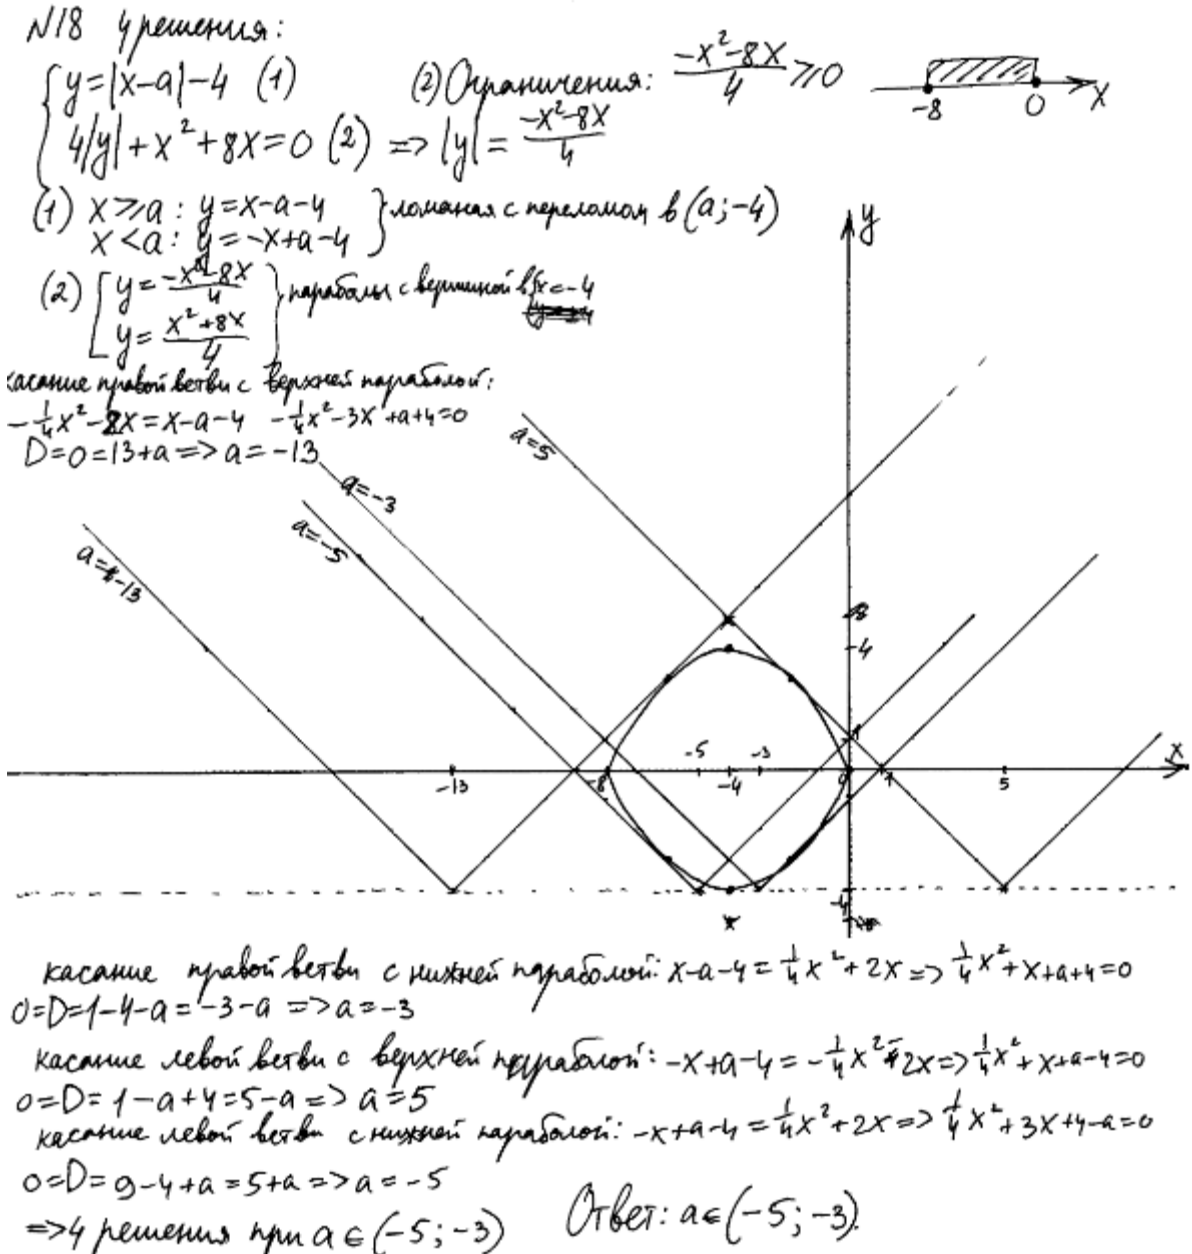 N18 4 решения:
{ y=|x-a|-4 (1)
4|y|+x²+8x=0 (2) => |y| = (-x²-8x)/4
(2) Ограничения: (-x²-8x)/4 ⩾ 0
-8 0 x
(1) x⩾a: y=x-a-4
x<a: y=-x+a-4 } ломаная с переломом в (a;-4)
(2) [ y = (-x²-8x)/4
y = (x²+8x)/4 } параболы с вершиной в {x=-4
касание правой ветви с верхней параболой:
-1/4x²-2x=x-a-4 -1/4x²-3x+a+4=0
D=0=13+a=>a=-13
y
a=5
a=-3
a=-5
a=-13
8
-4
1
-13 -8 -5 -4 -3 0 1 5 x
-4
касание правой ветви с нижней параболой: x-a-4=1/4x²+2x=>1/4x²+x+a+4=0
0=D=1-4-a=-3-a=>a=-3
касание левой ветви с верхней параболой: -x+a-4=-1/4x²-2x=>1/4x²+x+a-4=0
0=D=1-a+4=5-a=>a=5
касание левой ветви с нижней параболой: -x+a-4=1/4x²+2x=>1/4x²+3x+4-a=0
0=D=9-4+a=5+a=>a=-5
=>4 решения при a∈(-5;-3) Ответ: a∈(-5;-3).